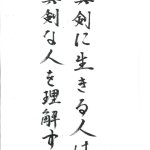 真剣に生きる人は
真剣な人を理解す